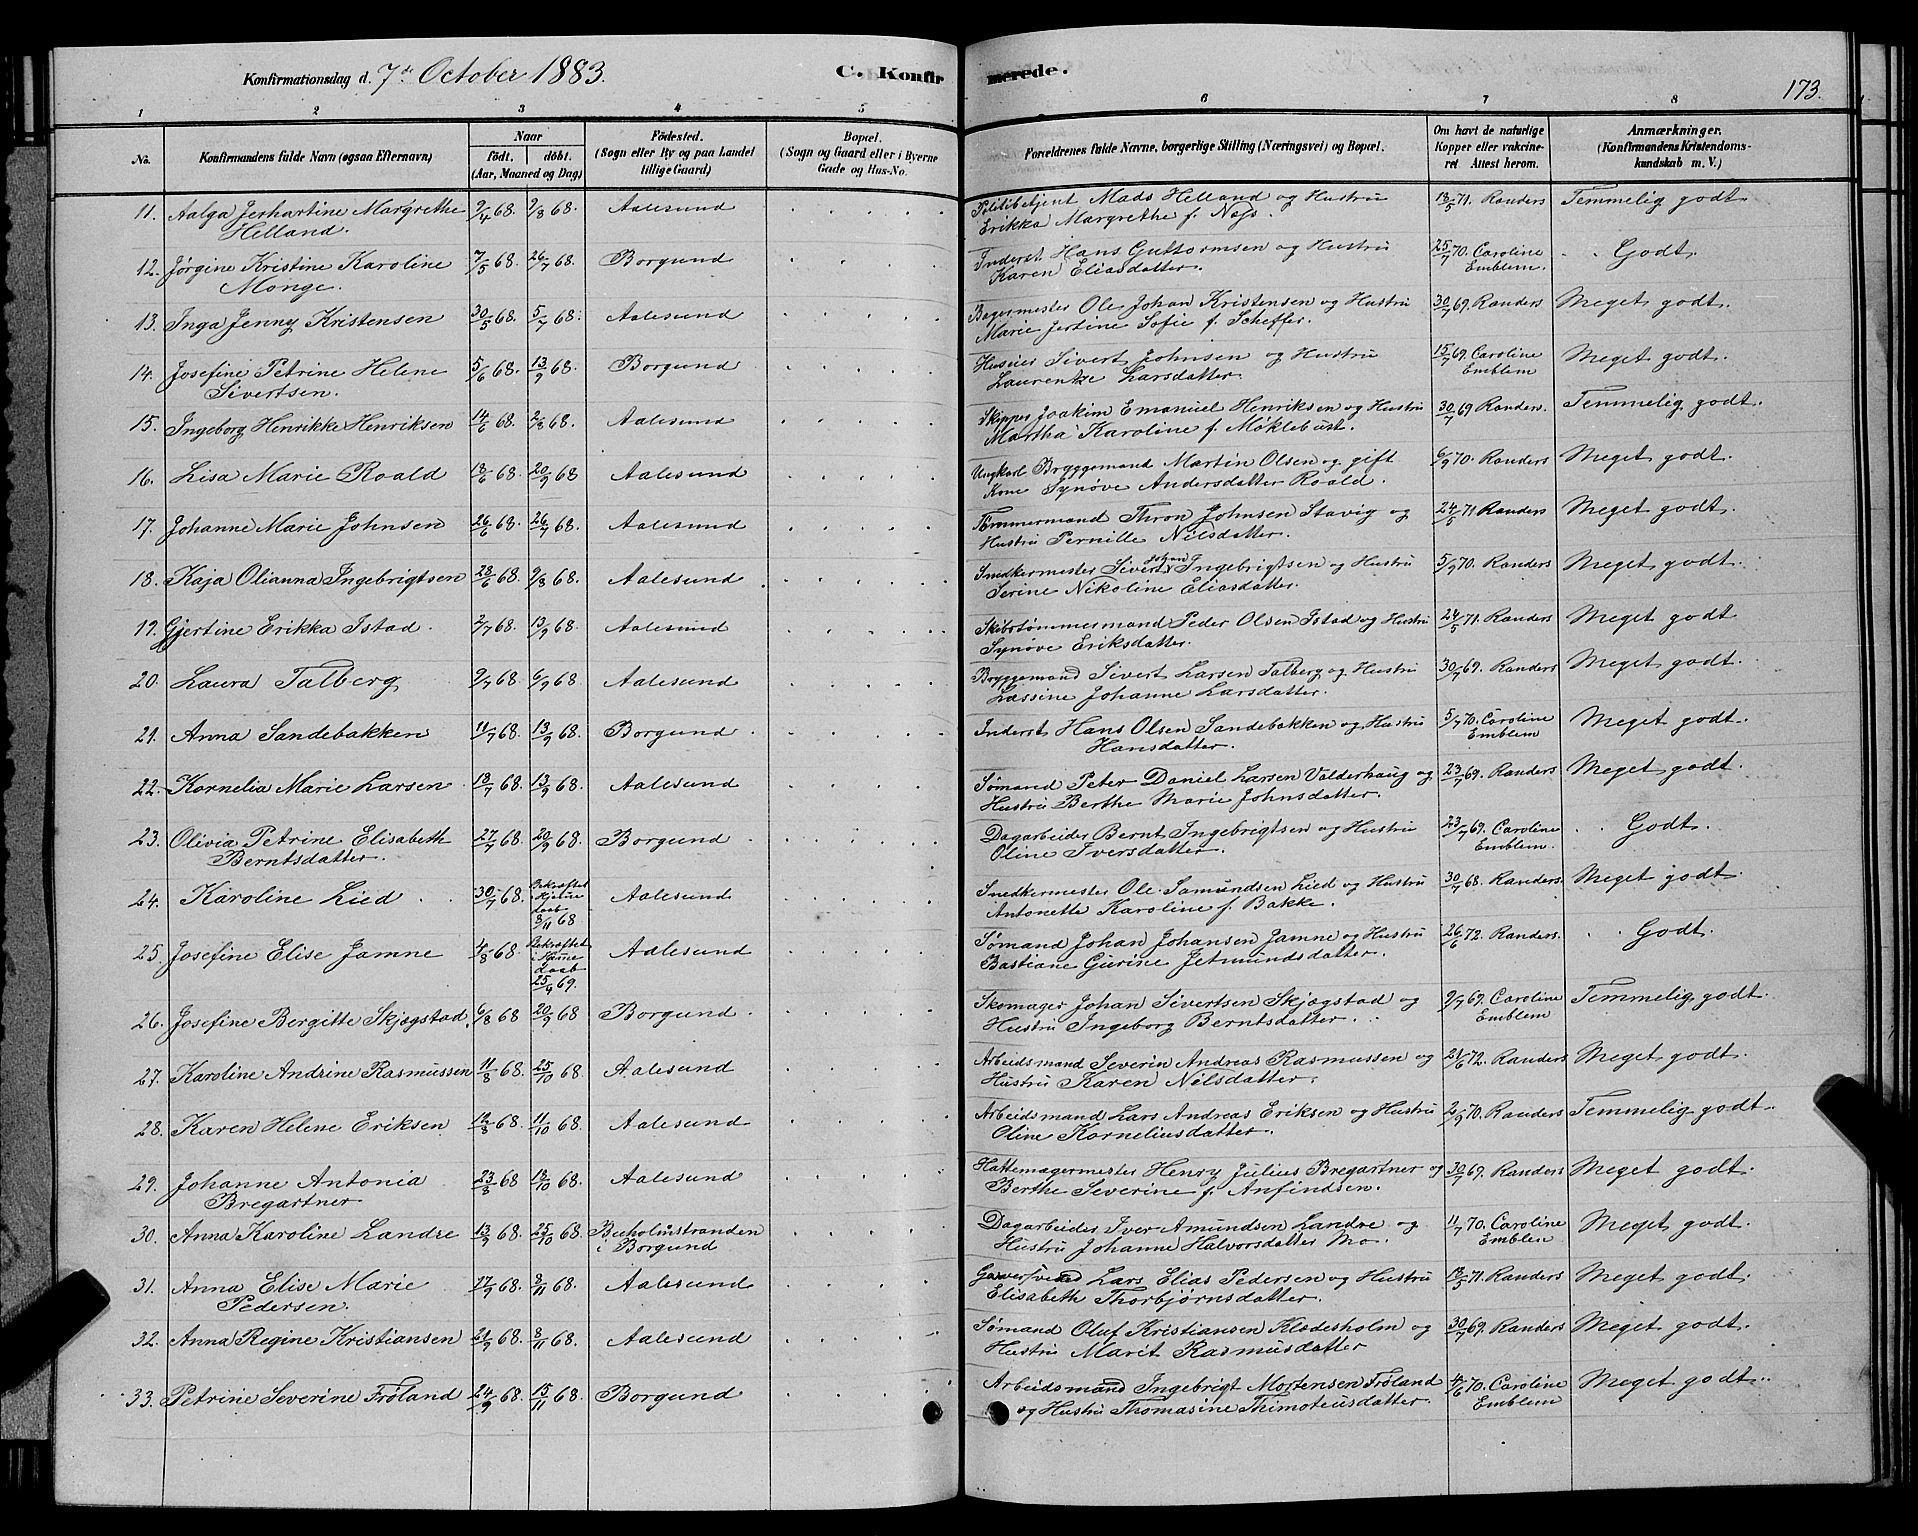 Konfirmationsdag d. 7de October 1883.
C. Konfirmerede.
173.
1 2 3 4 5 6 7 8
No.
Konfirmandens fulde Navn (ogsaa Efternavn)
Naar
födt. döbt.
(Aar, Maaned og Dag)
Födested.
(Sogn eller By og paa Landet
tillige Gaard)
Bopæl.
(Sogn og Gaard eller i Byerne
Gade og Hus-No.
Forældrenes fulde Navne, borgerlige Stilling (Næringsvei) og Bopæl.
Om havt de naturlige
Kopper eller vakcine-
ret Attest herom.
Anmærkninger.
(Konfirmandens Kristendoms-
kundskab m. V.)
11. Aalga Jerhartine Margrethe 9/4 68. 2/8 68. Aalesund Politibetjent Mads Helland og Hustru 18/5 71. Randers Temmelig godt.
Helland. Erikka Margrethe f. Næss.
12. Jørgine Kristine Karoline 7/5 68. 26/7 68. Borgund Inderst Hans Guttormsen og Hustru 25/7 70. Caroline Godt.
Monge. Karen Eliasdatter. Emblem.
13. Inga Jenny Kristensen 30/5 68. 5/7 68. Aalesund Bagermester Ole Johan Kristensen og Hustru 30/7 69. Randers Meget godt.
Marie Jertine Sofie f. Scheffer.
14. Josefine Petrine Helene 5/6 68. 13/9 68. Borgund Huseier Sivert Johnsen og Hustru 15/7 69. Caroline Meget godt.
Sivertsen. Laurentze Larsdatter. Emblem
15. Ingeborg Henrikke Henriksen 14/6 68. 2/8 68. Aalesund Skipper Joakim Emanuel Henriksen og Hustru 30/7 69 Randers. Temmelig godt.
Martha Karoline f. Møklebust.
16. Lisa Marie Roald 18/6 68. 20/9 68 Aalesund Ungkarl Bryggemand Martin Olsen og gift 6/9 70. Randers Meget godt.
Kone Synøve Andersdatter Roald.
17. Johanne Marie Johnsen 26/6 68. 26/7 68. Aalesund Tømmermand Thron Johnsen Stavig og 24/5 71 Randers Meget godt.
Hustru Pernille Nilsdatter.
18. Kaja Olianna Ingebrigtsen 28/6 68. 9/8 68. Aalesund Snedkermester Sivert Johan Ingebrigtsen og Hustru 5/9 70. Randers Meget godt.
Serine Nikoline Eliasdatter.
19. Gjertine Erikka Istad. 2/7 68. 13/9 68. Aalesund Skibstømmermand Peder Olsen Istad og Hustru 24/5 71. Randers Meget godt
Synøve Eriksdatter.
20. Laura Talberg 9/7 68. 6/9 68 Aalesund Bryggemand Sivert Larsen Talberg og Hustru 30/7 69. Randers Meget godt.
Lassine Johanne Larsdatter.
21. Anna Sandebakken 11/7 68. 13/9 68. Borgund Inderst Hans Olsen Sandebakken og Hustru 5/7 70. Caroline Meget godt.
Hansdatter. Emblem
22. Kornelia Marie Larsen 18/7 68. 13/9 68. Aalesund Sømand Peter Daniel Larsen Valderhaug og 23/7 69. Randers Meget godt.
Hustru Berthe Marie Johnsdatter.
23. Olivia Petrine Elisabeth 27/7 68. 20/9 68. Borgund Dagarbeider Bernt Ingebrigtsen og Hustru 23/7 69. Caroline Godt.
Berntsdatter. Oline Iversdatter. Emblem.
24. Karoline Lied 30/7 68. Bekræftet Hjemmedaab 8/11 68 Aalesund Snedkermester Ole Samundsen Lied og Hustru 30/7 68. Randers. Meget godt.
Antonette Karoline f. Bakke.
25. Josefine Elise Jamne 4/8 68. Bekræftet Hjemmedaab 25/4 69. Aalesund Sømand Johan Johansen Jamne og Hustru 26/6 72. Randers. Godt.
Bastiane Gurine Jetmundsdatter.
26. Josefine Bergitte Skjægstad. 6/8 68 20/9 68 Borgund. Skomager Johan Sivertsen Skjægstad og 9/7 69. Caroline Temmelig godt.
Hustru Ingeborg Berntsdatter. Emblem
27. Karoline Andrine Rasmussen 11/8 68. 25/10 68. Aalesund Arbeidsmand Severin Andreas Rasmussen og 21/6 72. Randers Meget godt.
Hustru Karen Nilsdatter.
28. Karen Helene Eriksen 12/8 68. 11/10 68. Aalesund Arbeidsmand Lars Andreas Eriksen og Hustru 2/9 70. Randers Temmelig godt.
Oline Korneliusdatter.
29. Johanne Antonia 23/8 68 18/10 68. Aalesund Hattemagermester Henry Julius Bregartner og 30/7 69. Randers Meget godt.
Bregartner Berthe Severine f. Anfindsen.
30. Anna Karoline Landre 13/9 68. 25/10 68. Buholmstranden Dagarbeider Iver Amundsen Landre og 11/7 70. Caroline Meget godt.
i Borgund Hustru Johanne Halvorsdatter Mo. Emblem
31. Anna Elise Marie 17/9 68. 8/11 68. Aalesund Garversvend Lars Elias Pedersen og Hustru 18/5 71. Randers Meget godt.
Pedersen. Elisabeth Thorbjørnsdatter.
32. Anna Regine Kristiansen 21/9 68. 8/11 68. Aalesund Sømand Oluf Kristiansen Klodesholm og 30/7 69. Randers Meget godt.
Hustru Marit Rasmusdatter
33. Petrine Severine Frøland 24/9 68. 15/11 68. Borgund Arbeidsmand Ingebrigt Mortensen Frøland 4/6 70. Caroline Meget godt.
og Hustru Thomasine Thimoteusdatter. Emblem